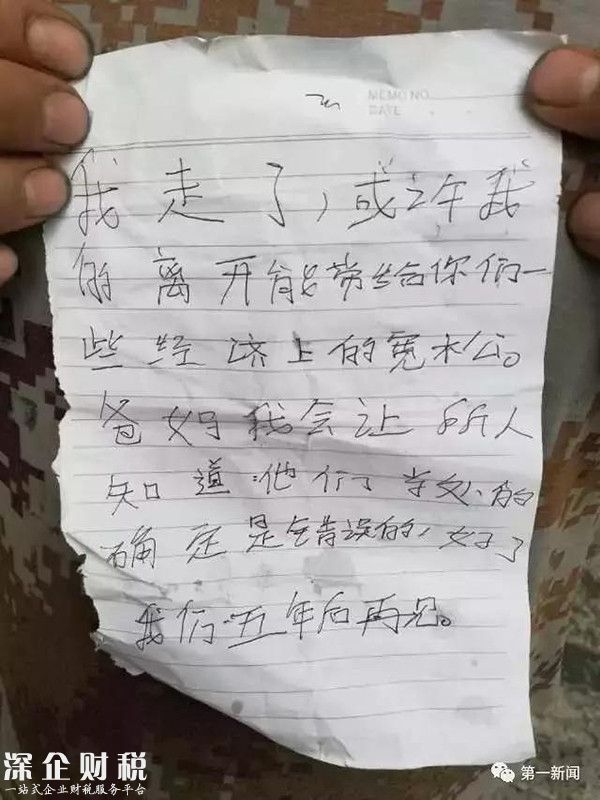 MEMO NO.
DATE
我走了，或许我
的离开能带给你们一
些经济上的宽松。
爸妈我会让所人
知道他们学处的
确定是错误的，好了
我们五年后再见。
深企财税
一站式企业财税服务平台
第一新闻